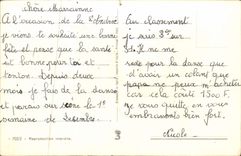 Chère Marraine
A l'occasion de la
je viens te souhaiter une bonne
fête et pense que la santé
est bonne pour toi et
tonton. Depuis deux
mois je fais de la danse
et parais sur scène le 1er
dimanche de Décembre.
Au classement
je suis 3e sur
Il ne me
reste pour la danse que
d'avoir un collant que
papa ne peux m'acheter
car cela coûte 1500 F.
Je vous quitte en vous
embrassant bien fort.
Nicole